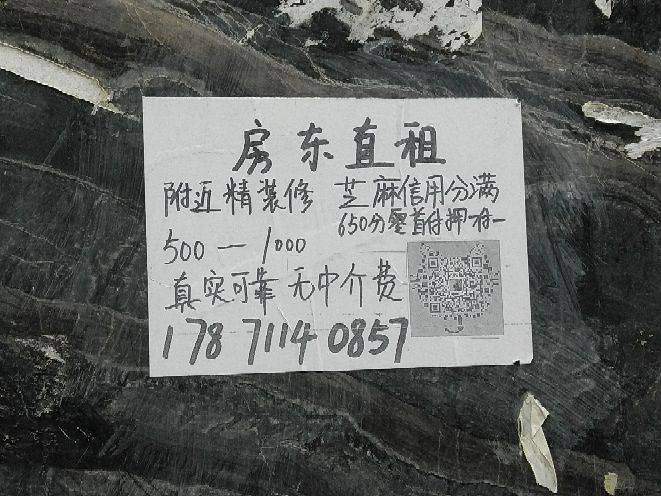 房东直租
附近精装修
芝麻信用分满
650分零首付押一付一
500一1000
真实可靠 无中介费
178 7114 0857